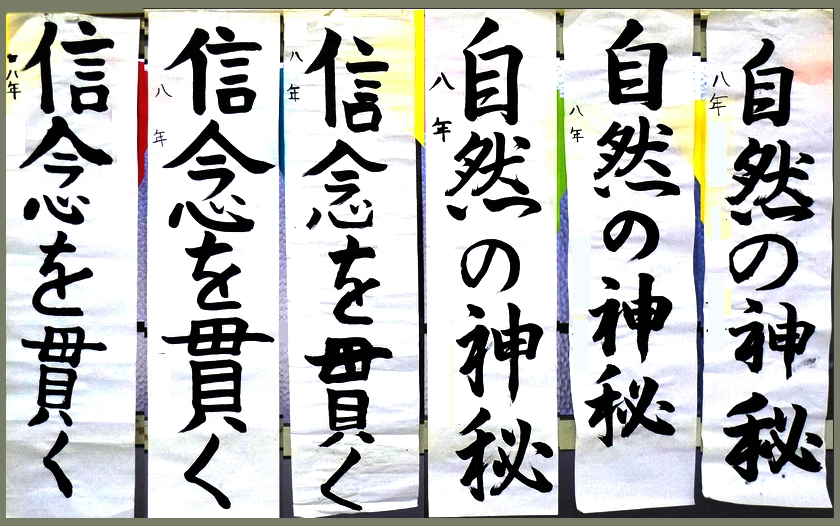 自然の神秘
八年
自然の神秘
八年
自然の神秘
八年
信念を貫く
八年
信念を貫く
八年
信念を貫く
八年